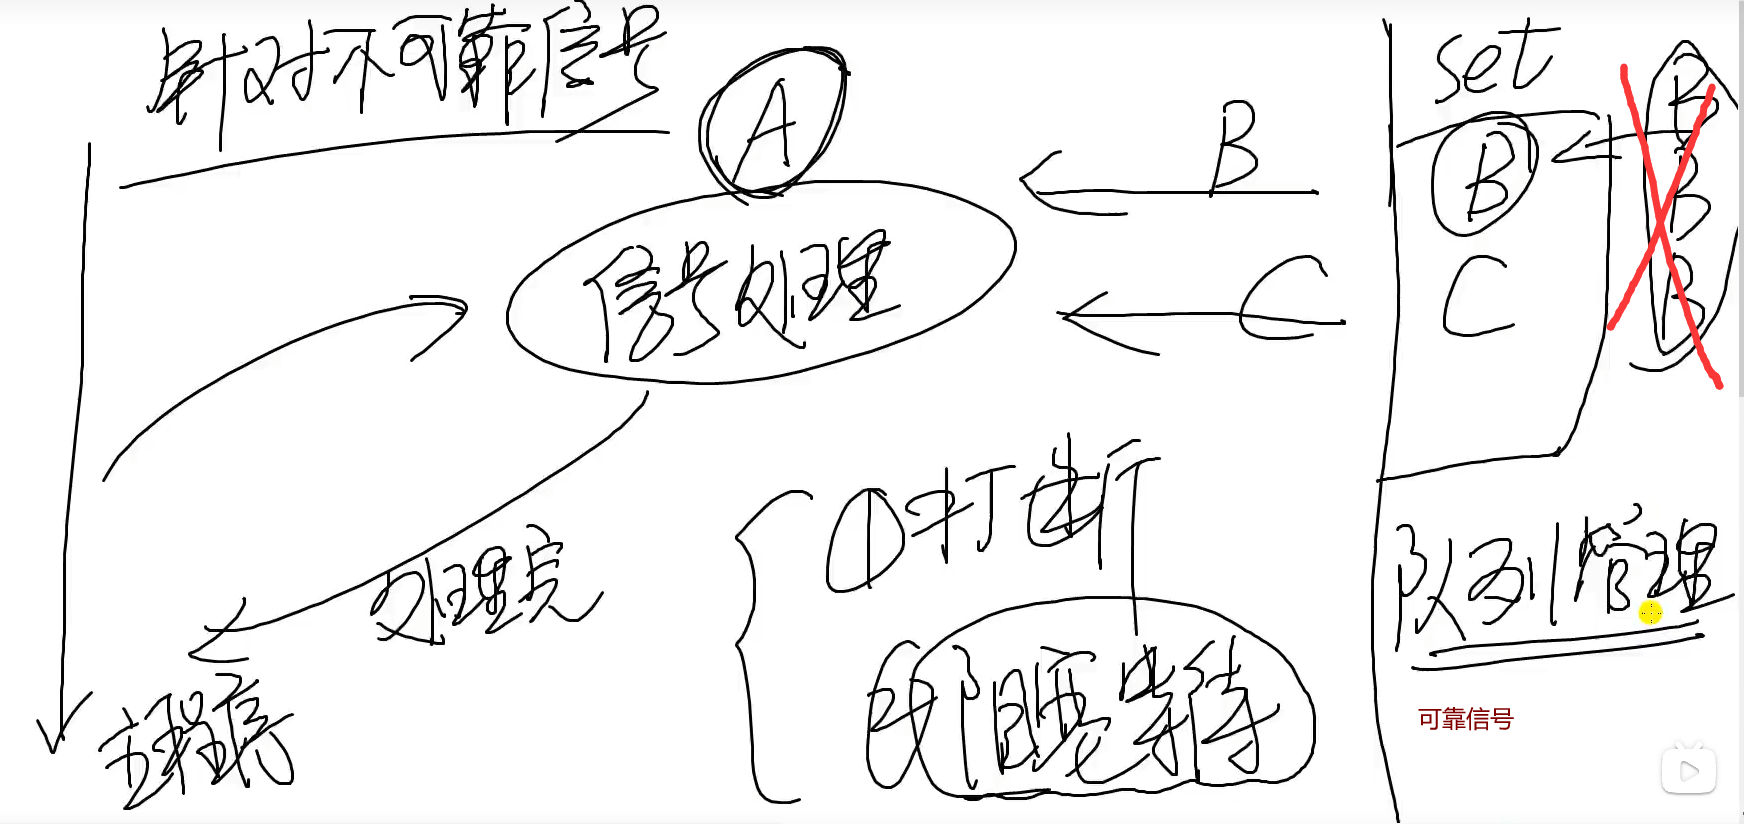 针对不可靠信号
A
信号处理
B
C
处理完
主程序
①打断
② 阻塞等待
set
B
C
B
B
B
队列管理
可靠信号